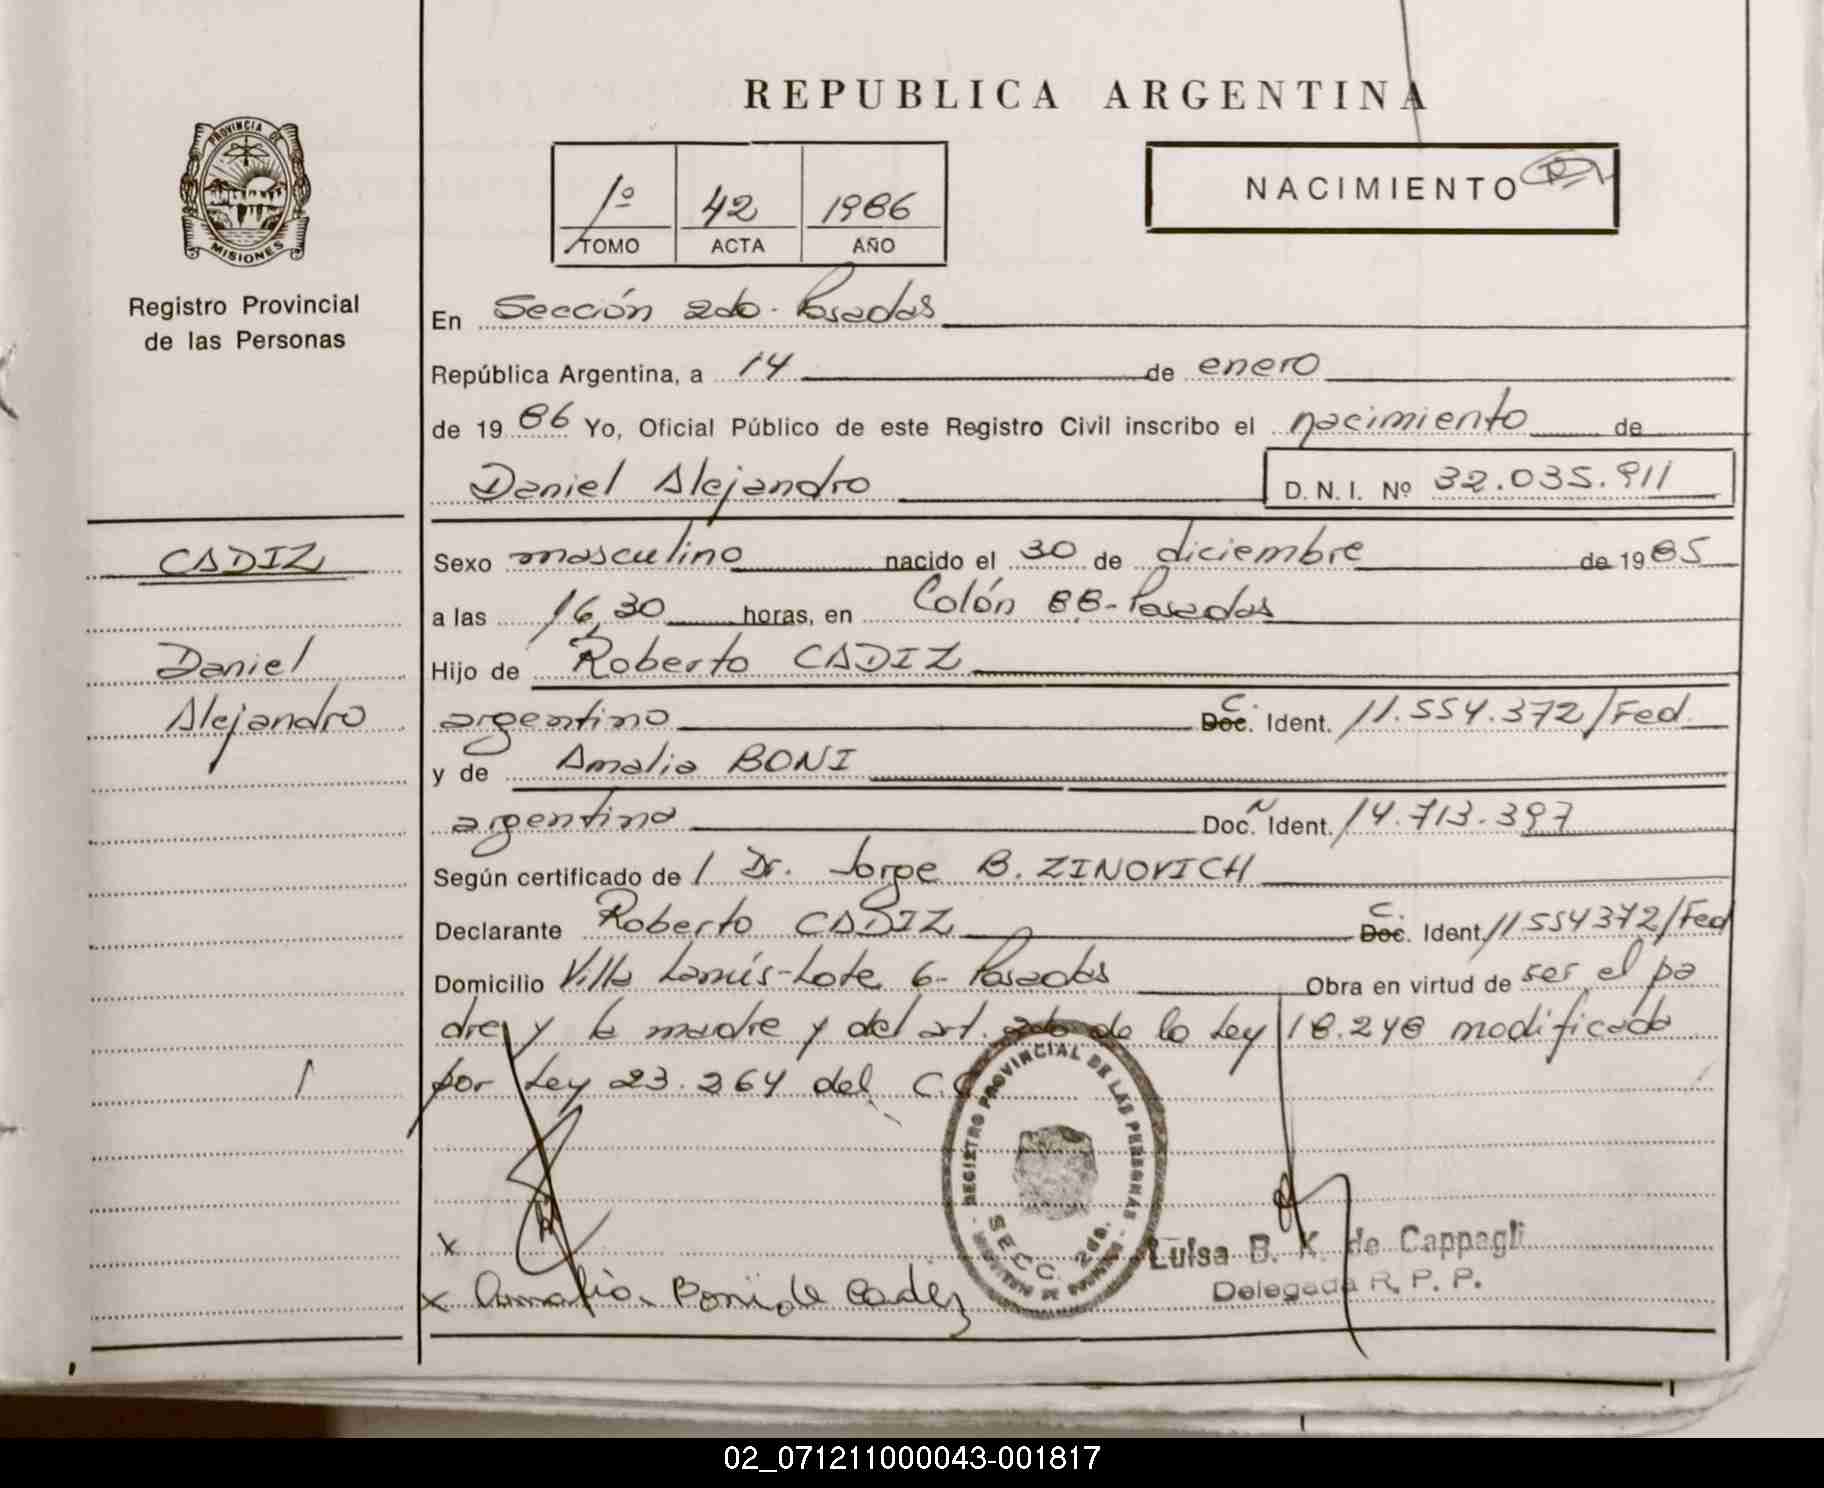 REPUBLICA ARGENTINA
PROVINCIA DE
MISIONES
Registro Provincial
de las Personas
1º 42 1986
TOMO ACTA AÑO
NACIMIENTO
En Sección 2do. Posadas
República Argentina, a 14 de enero
de 1986 Yo, Oficial Público de este Registro Civil inscribo el nacimiento de
Daniel Alejandro D. N. I. Nº 32.035.911
CADIZ
Daniel
Alejandro
Sexo masculino nacido el 30 de diciembre de 1985
a las 16,30 horas, en Colón 88-Posadas
Hijo de Roberto CADIZ
argentino C. Doc. Ident. 11.554.372/Fed.
y de Amalia BONI
argentina Doc. Ident. 14.713.397
Según certificado de l Dr. Jorge B. ZINOVICH
Declarante Roberto CADIZ C. Doc. Ident. 11.554372/Fed
Domicilio Villa Lanús-Lote 6- Posadas Obra en virtud de ser el pa
dre y la madre y del art. 2do de la Ley 18.248 modificada
por Ley 23.264 del C.C
REGISTRO PROVINCIAL DE LAS PERSONAS
SECC. 2da.
Luisa B. K. de Cappagli
Delegada R. P. P.
x
x Amalia Boni de Cadiz
02_071211000043-001817